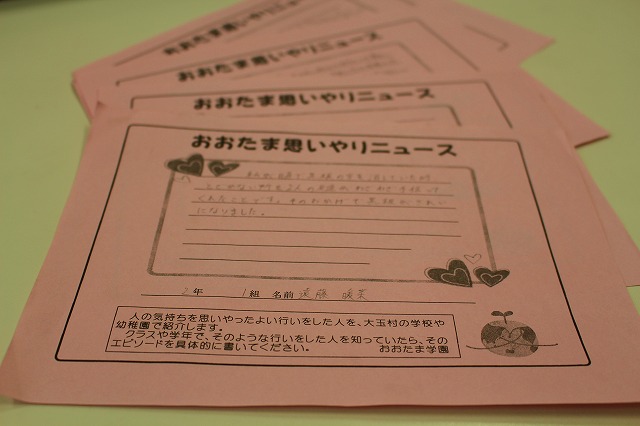 おおたま思いやりニュース
おおたま思いやりニュース
おおたま思いやりニュース
おおたま思いやりニュース
くれたことです。そのおかげで黒板がきれい
になりました。
2年 1組 名前 遠藤
人の気持ちを思いやったよい行いをした人を、大玉村の学校や
幼稚園で紹介します。
クラスや学年で、そのような行いをした人を知っていたら、その
エピソードを具体的に書いてください。 おおたま学園